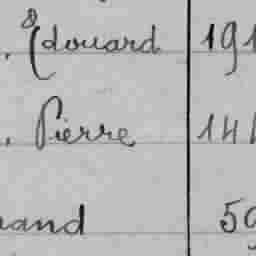 . Édouard 191
. Pierre 141
nand 59